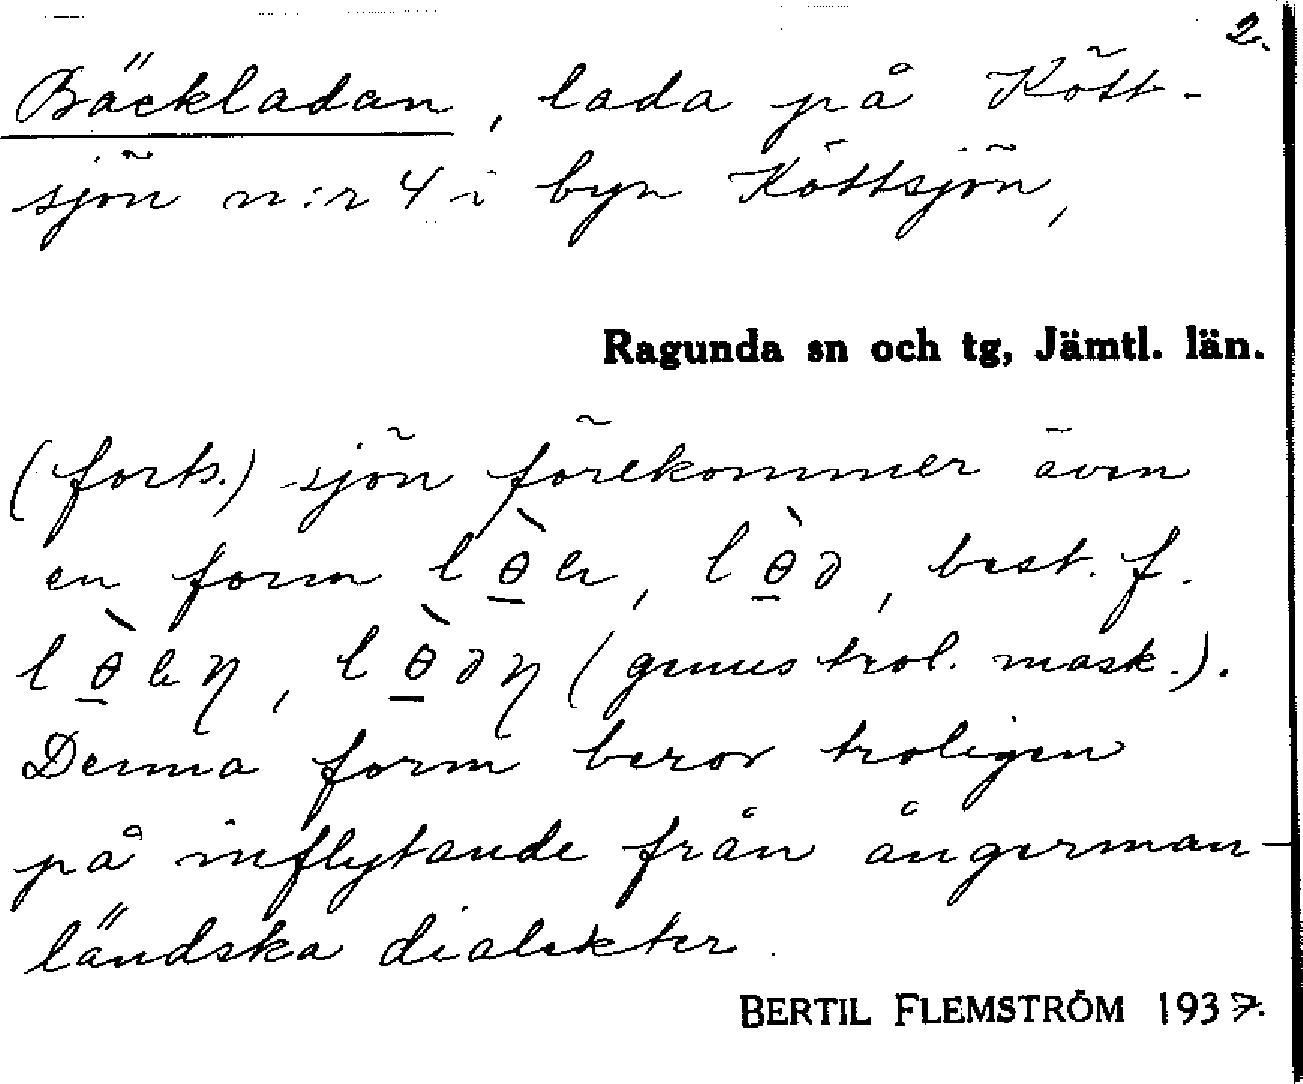 2.
Bäckladan, lada på Kött-
sjön n:r 4 i byn Köttsjön,
Ragunda sn och tg, Jämtl. län.
(forts.) sjön förekommer även
en form best. f.
(genus trol. mask.).
Denna form beror troligen
på inflytande från ångerman-
ländska dialekter.
BERTIL FLEMSTRÖM 1937.